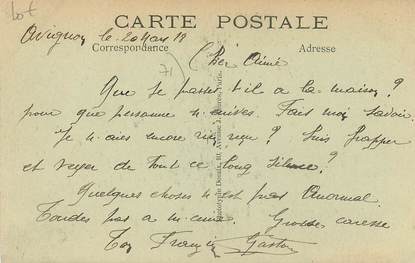 Lot
CARTE POSTALE
Correspondance
Adresse
Avignon le 20 Mars 19
71
Cher Aimé
Que se passe t-il a la maison?
pour que personne n'
Fais moi savoir.
Je n'ai encore rien reçu? Suis frapper
et de tout ce long silence?
Quelques choses n'est pas Anormal.
Tardes pas a m'
Grosses caresse
Ton Gaston